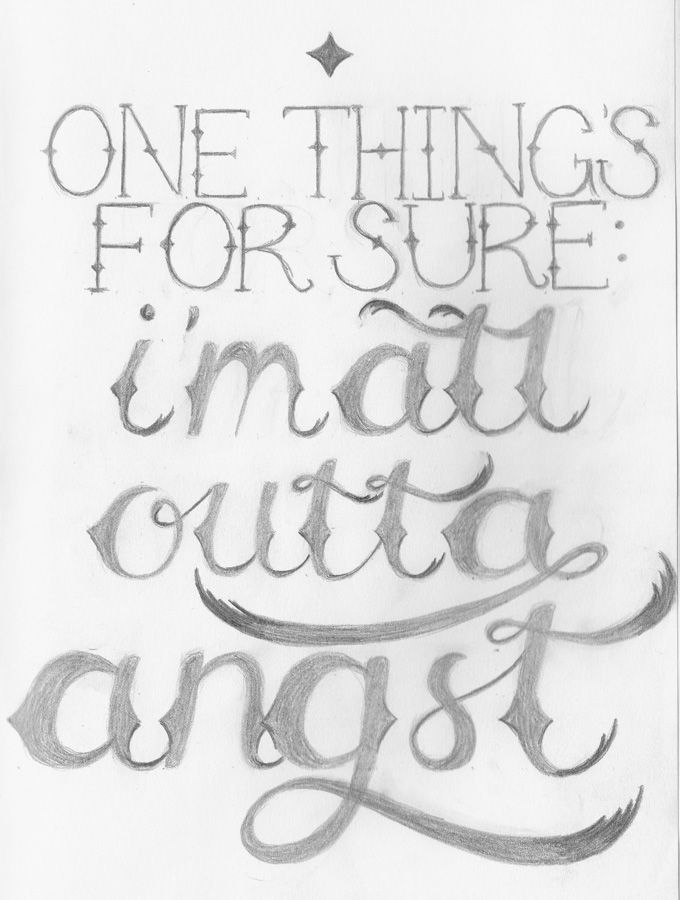 ONE THING'S
FOR SURE:
i'm all
outta
angst